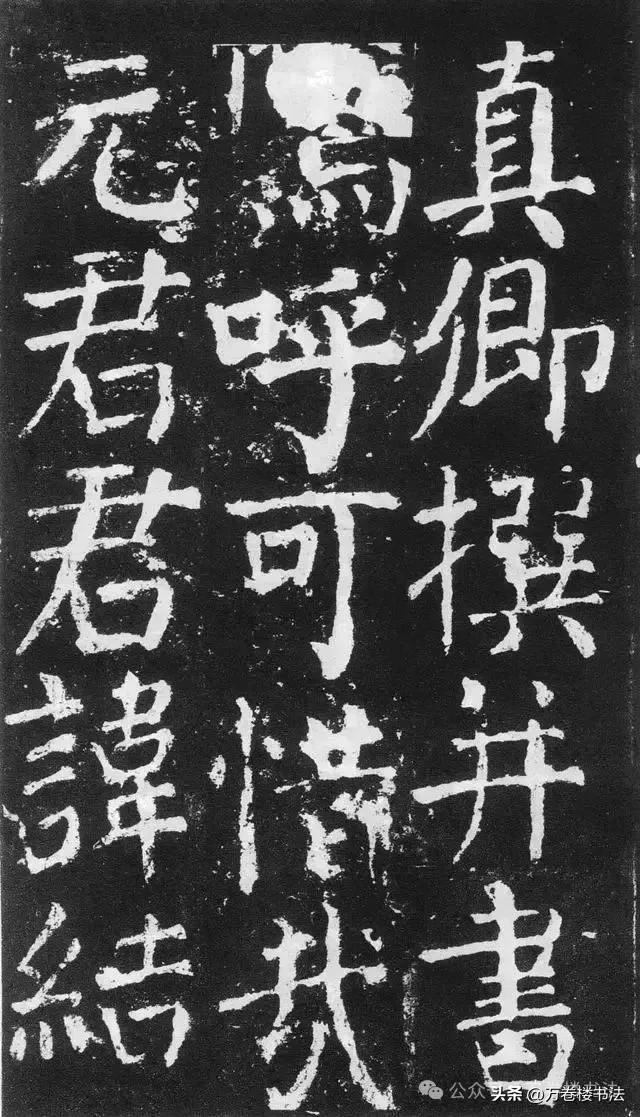 真卿撰并書
嗚呼可惜哉
元君君諱結
公众
头条 @万卷楼书法